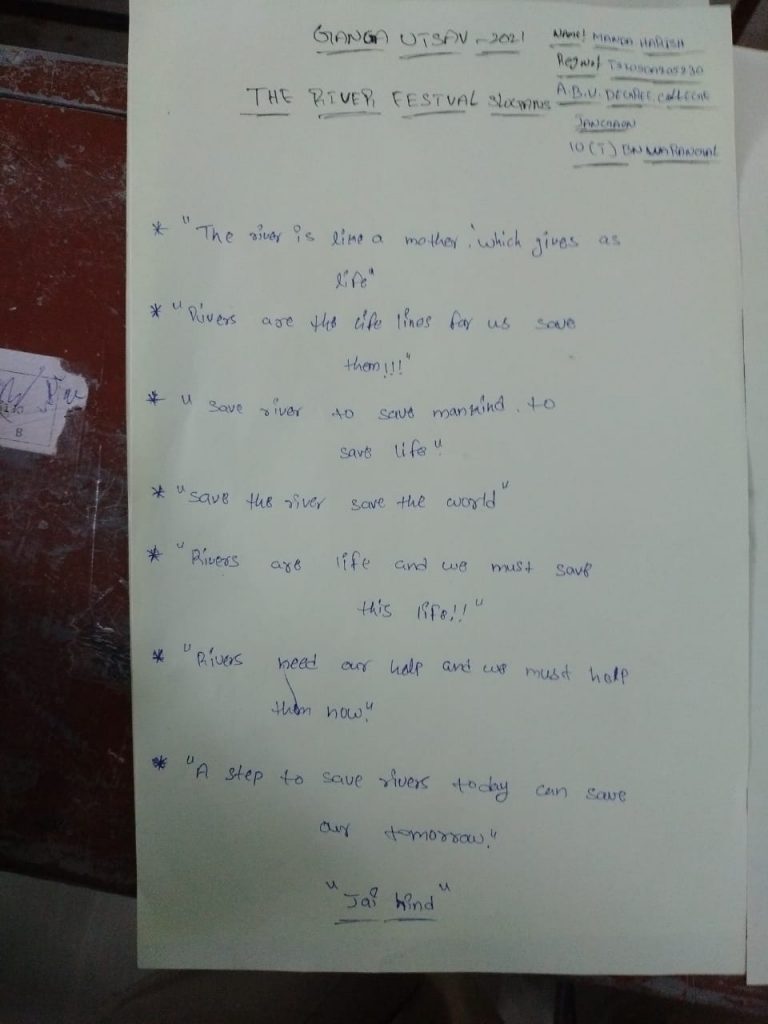 GANGA UTSAV - 2021
THE RIVER FESTVAL SLOGANS
Name: MANDA HARISH
A.B.V. DEGREE COLLEGE
JANGAON
10 (T) BN WARANGAL
* "The river is like a mother, which gives as
life"
* "Rivers are the life lines for us save
them!!!"
* "save river to save mankind. to
save life"
* "save the river save the world"
* "Rivers are life and we must save
this life!!"
* "Rivers need our help and we must help
them now."
* "A step to save rivers today can save
our tomorrow."
"Jai hind"
B